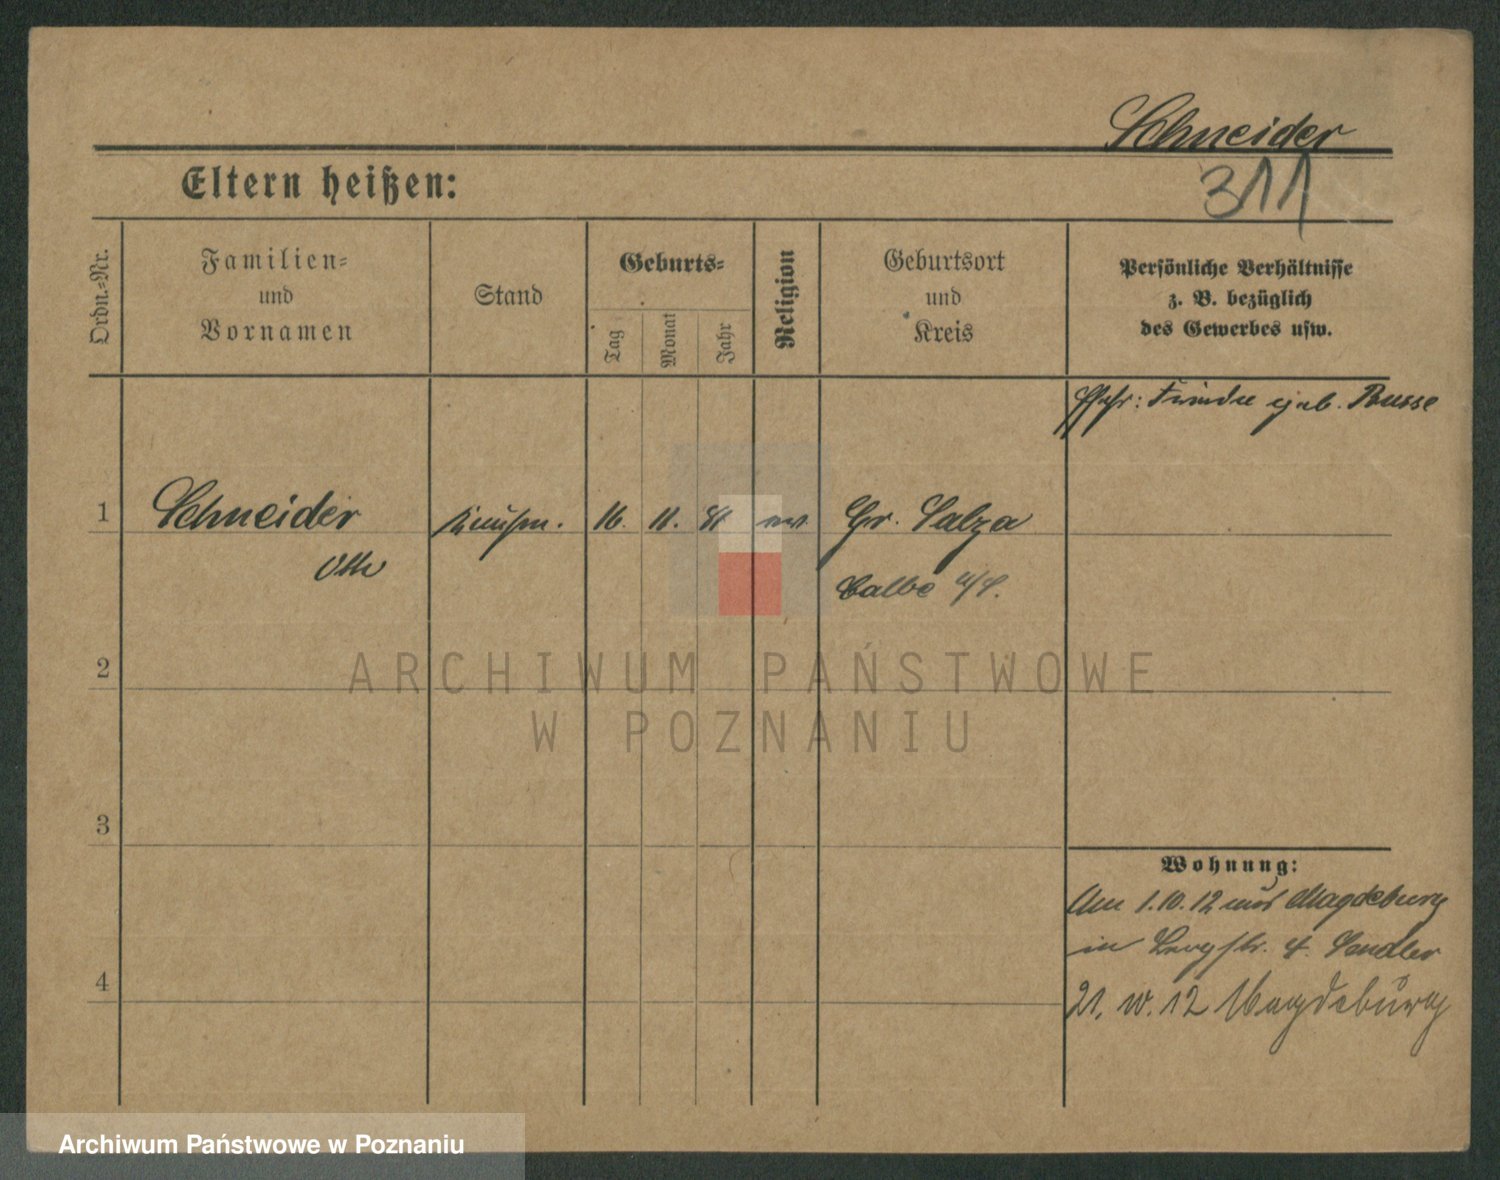 Schneider
311
Eltern heißen:
Ordn.-Nr.
Familien-
und
Vornamen
Stand
Geburts-
Tag
Monat
Jahr
Religion
Geburtsort
und
Kreis
Persönliche Verhältnisse
z. B. bezüglich
des Gewerbes usw.
geb. Busse
1
Schneider
Otto
16. 11. 81 ev.
Gr. Salza
Calbe a/S.
2
ARCHIWUM PAŃSTWOWE
W POZNANIU
3
4
Wohnung:
Am 1.10.12 aus Magdeburg
in Bergstr. 4.
21. 10. 12 Magdeburg
Archiwum Państwowe w Poznaniu